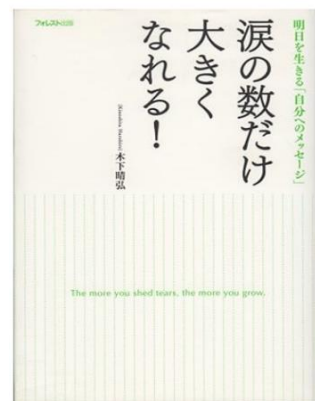 フォレスト出版
明日を生きる「自分へのメッセージ」
涙の数だけ
大きく
なれる！
[Kinoshita Haruhiro] 木下晴弘
The more you shed tears, the more you grow.